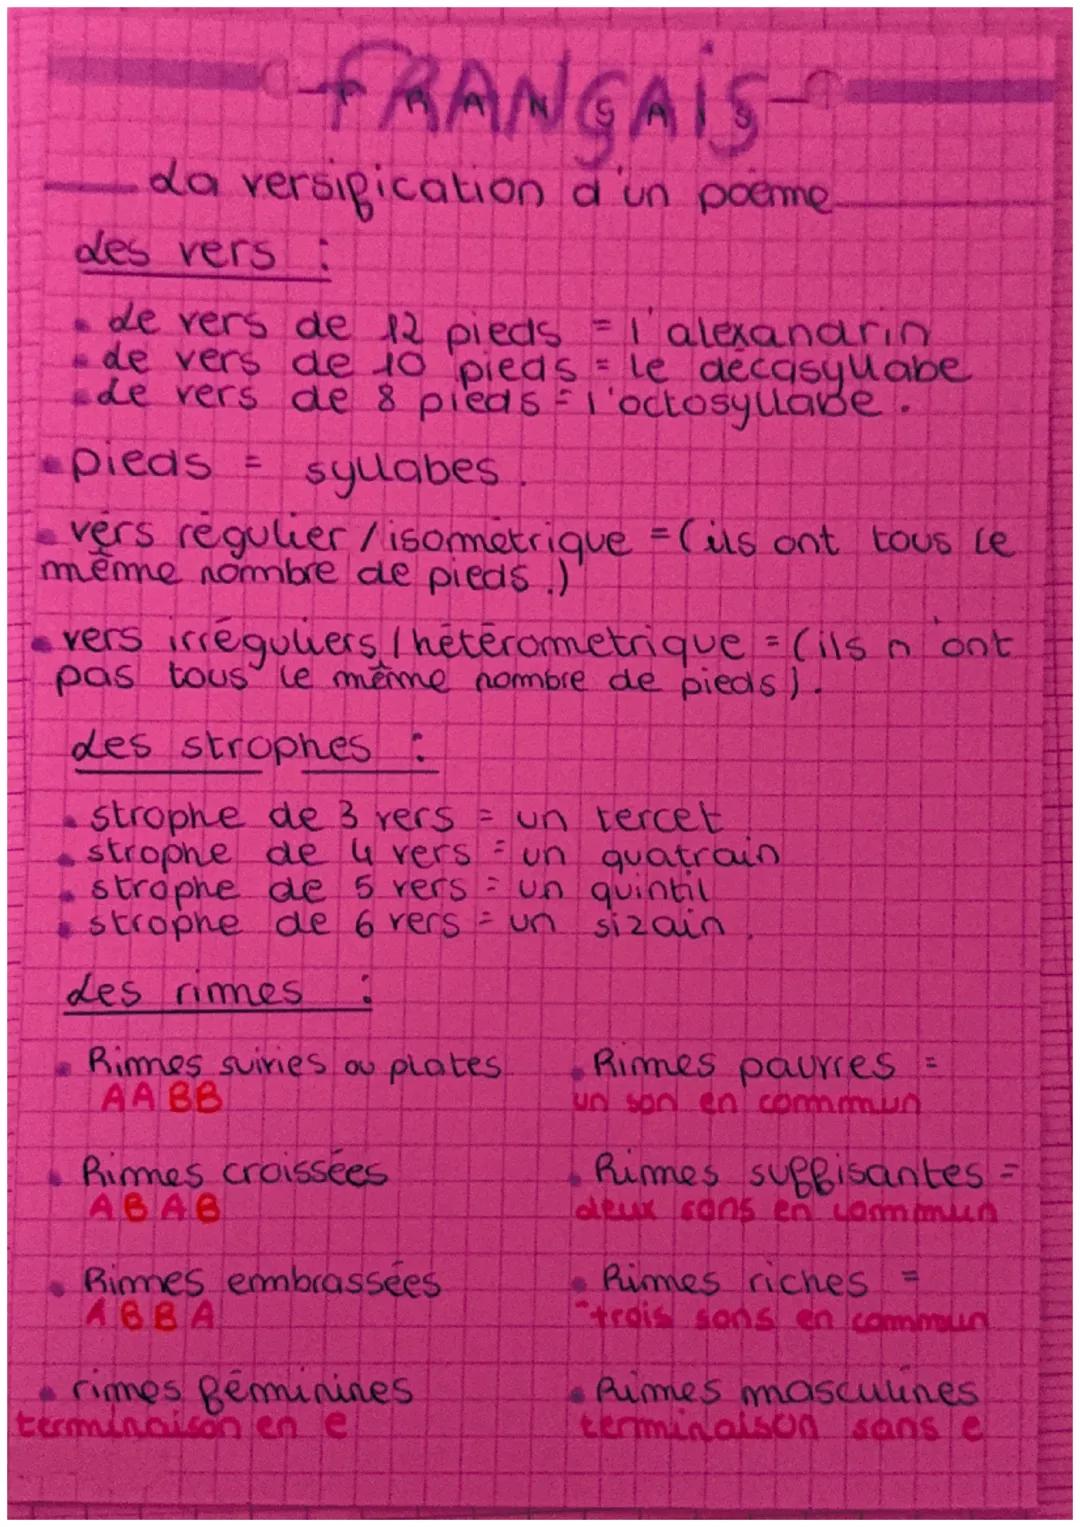 FRANÇAIS
La versification d'un poème
Les vers :
• Le vers de 12 pieds = l'alexandrin
• Le vers de 10 pieds = le décasyllabe
• Le vers de 8 pieds = l'octosyllabe.
• pieds = syllabes.
• vers régulier / isométrique = (ils ont tous le
même nombre de pieds.)
• vers irréguliers / hétérométrique = (ils n'ont
pas tous le même nombre de pieds).
Les strophes :
• strophe de 3 vers = un tercet
• strophe de 4 vers = un quatrain
• strophe de 5 vers = un quintil
• strophe de 6 vers = un sizain.
Les rimes :
• Rimes suivies ou plates
AABB
• Rimes pauvres =
un son en commun
• Rimes croissées
ABAB
• Rimes suffisantes =
deux sons en commun
• Rimes embrassées
ABBA
• Rimes riches =
trois sons en commun
• rimes féminines
terminaison en e
• Rimes masculines
terminaison sans e